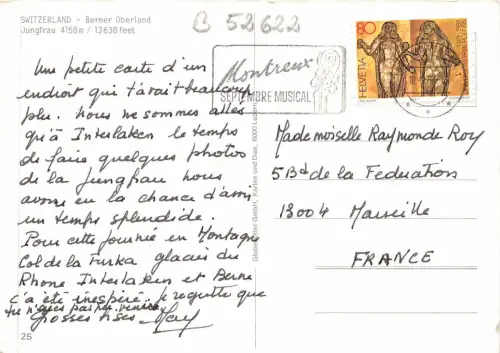 SWITZERLAND - Berner Oberland
Jungfrau 4158m / 13638 feet
B 52622
Montreux
SEPTEMBRE MUSICAL
80
HELVETIA
Une petite carte d'un
endroit qui t'avait beaucoup
plu. Nous ne sommes allés
qu'à Interlaken le temps
de faire quelques photos
de la Jungfrau nous
avons eu la chance d'avoir
un temps splendide.
Pour cette journée en Montagne
Col de la Furka glacier du
Rhone Interlaken et Berne
ç'a été inespéré.. je regrette que
tu n'aies pas pu venir
Grosses bises
Mademoiselle Raymonde Roy
5 Bd de la Federation
13004 Marseille
FRANCE
25